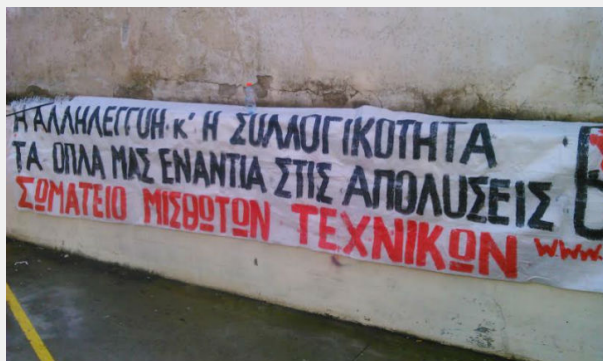 Η ΑΛΛΗΛΕΓΓΥΗ κ' Η ΣΥΛΛΟΓΙΚΟΤΗΤΑ
ΤΑ ΟΠΛΑ ΜΑΣ ΕΝΑΝΤΙΑ ΣΤΙΣ ΑΠΟΛΥΣΕΙΣ
ΣΩΜΑΤΕΙΟ ΜΙΣΘΩΤΩΝ ΤΕΧΝΙΚΩΝ www.